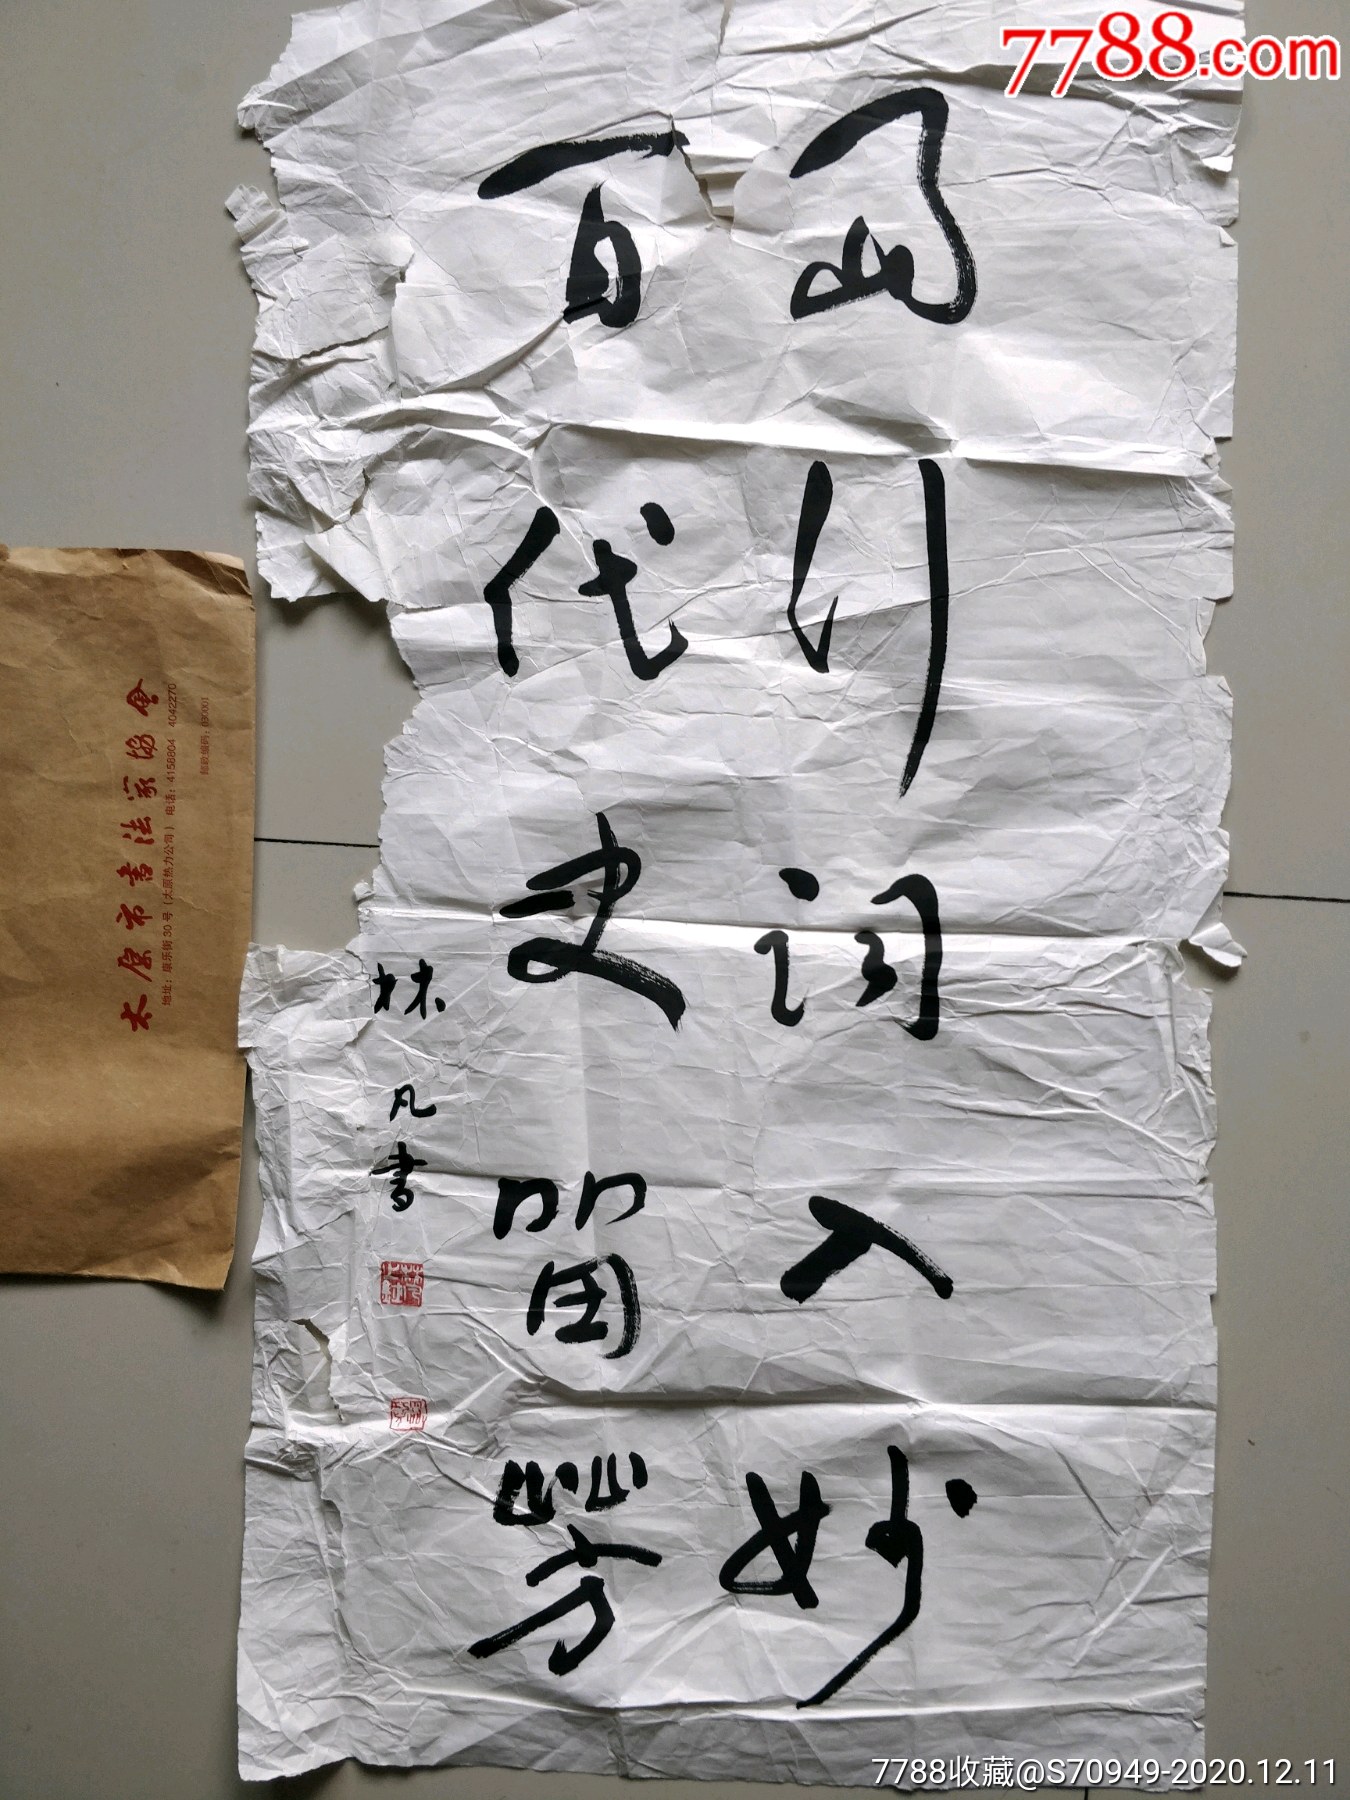 7788.com
行詞入妙
百代史留芳
林凡書
太原市書法家協會
地址：康乐街30号（太原热力公司） 电话：4158804 4042270
邮政编码：030001
7788收藏@S70949-2020.12.11